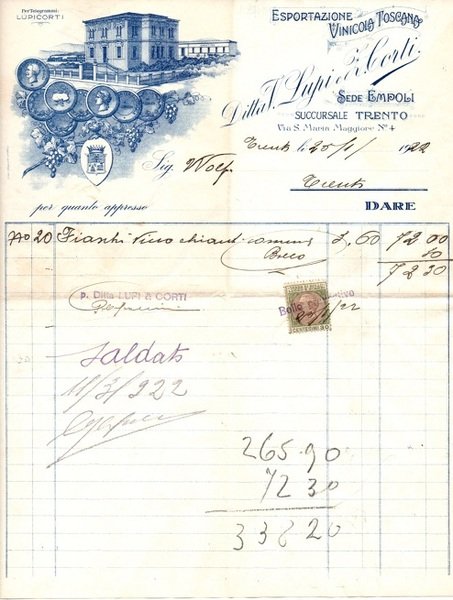 Per Telegrammi:
LUPICORTI
ESPORTAZIONE
VINICOLA TOSCANA
Ditta J. Lupi & Corti
SEDE EMPOLI
SUCCURSALE TRENTO
Via S. Maria Maggiore N.º 4
Trento li 20/1/ 1922
Sig. Wolf
Trento
per quanto appresso
DARE
No 20 Fiaschi Vino chianti comune 3,60 72 00
Bollo 30
72 30
p. Ditta LUPI & CORTI
Bollo
CENTESIMI 30
Saldato
11/3/922
265 90
72 30
338 20